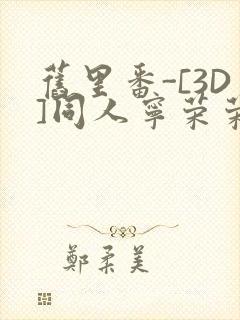 舊里番-[3D
]同人寧荣荣
鄭柔美